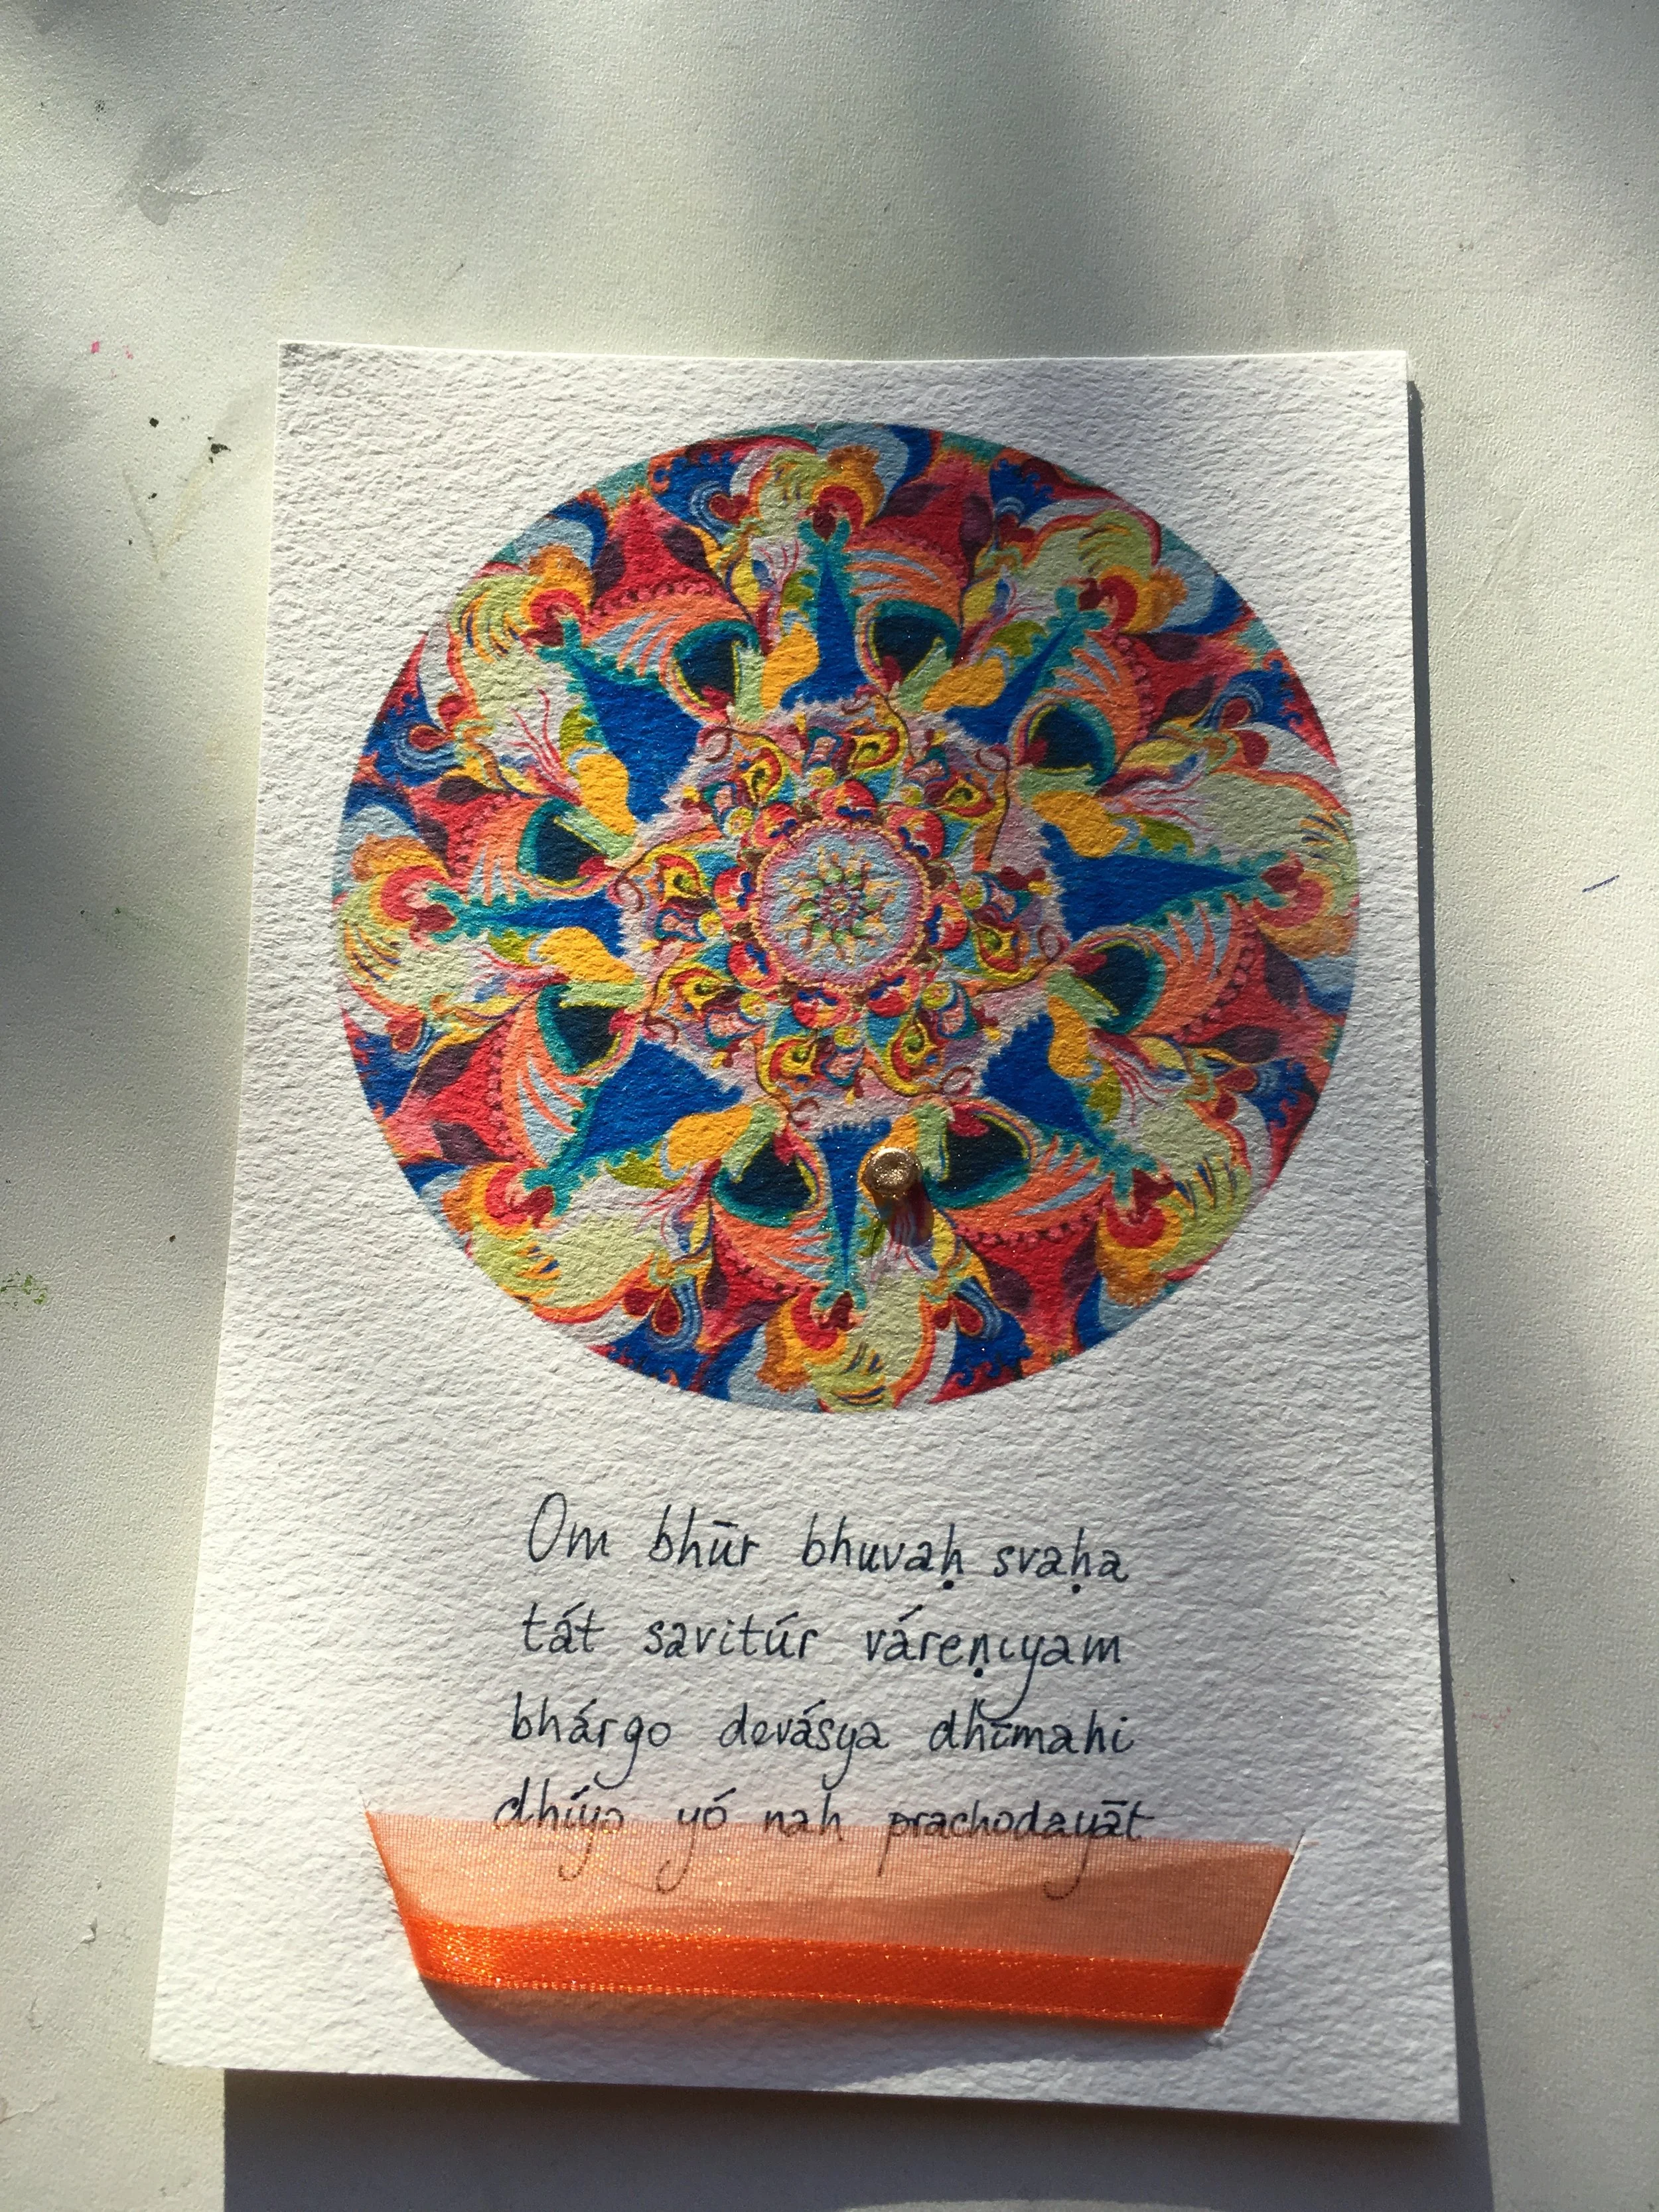 Om bhūr bhuvaḥ svaḥa
tát savitúr váreṇiyam
bhárgo devásya dhīmahi
dhíyo yó nah prachodayāt